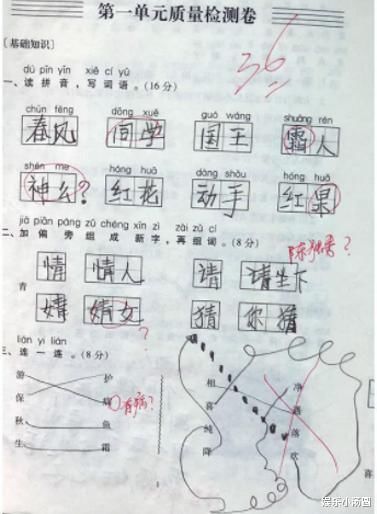 第一单元质量检测卷
36
〔基础知识〕
dú pīn yīn xiě cí yǔ
一、读拼音，写词语。(16分)
chūn fēng dōng xuě guó wáng shuāng rén
春风 同学 国王 霜人
shén me hóng huā dòng shǒu hóng huā
神么? 红花 动手 红果
jiā piān páng zǔ chéng xīn zì zài zǔ cí
二、加偏旁组成新字，再组词。(8分)
青
情 情人 请 请坐下
婧 婧女 猜 你猜
?
lián yi lián
三、连一连。(8分)
游 护
保 病 有病?
秋 鱼
生 霜
相 净
喜 遇
纯 落
降 欢